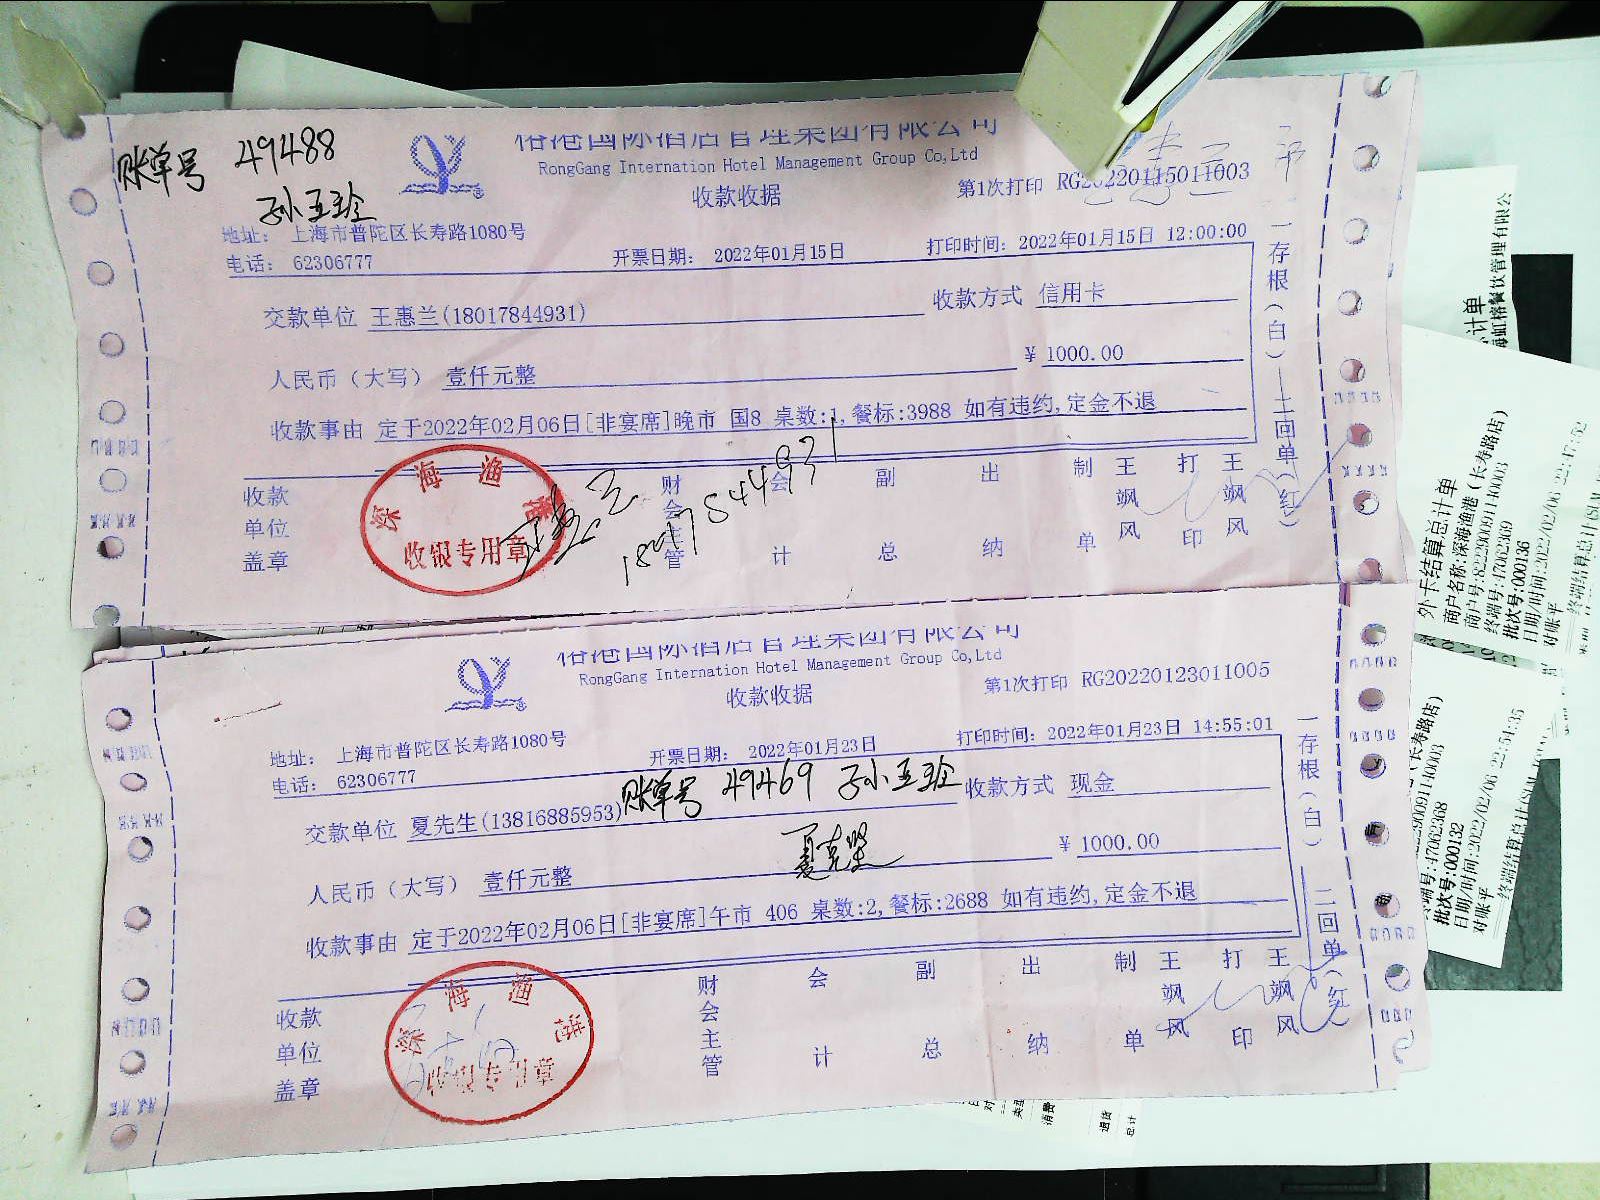 账单号 49488
孙玉玲
国际酒店管理集团有限公司
RongGang Internation Hotel Management Group Co,Ltd
收款收据
第1次打印 RG20220115011003
地址： 上海市普陀区长寿路1080号
电话： 62306777
开票日期： 2022年01月15日
打印时间：2022年01月15日 12:00:00
交款单位 王惠兰(18017844931)
收款方式 信用卡
人民币（大写） 壹仟元整
¥ 1000.00
收款事由 定于2022年02月06日[非宴席]晚市 国8 桌数:1,餐标:3988 如有违约,定金不退
收款单位盖章
财会主管
会计
副总
出纳
制单
王飒风
打印
王飒风
一存根（白）二回单（红）
深海渔港
收银专用章
18017844931
国际酒店管理集团有限公司
RongGang Internation Hotel Management Group Co,Ltd
收款收据
第1次打印 RG20220123011005
地址： 上海市普陀区长寿路1080号
电话： 62306777
开票日期： 2022年01月23日
打印时间：2022年01月23日 14:55:01
账单号 49469 孙玉玲
交款单位 夏先生(13816885953)
收款方式 现金
人民币（大写） 壹仟元整
¥ 1000.00
收款事由 定于2022年02月06日[非宴席]午市 406 桌数:2,餐标:2688 如有违约,定金不退
收款单位盖章
财会主管
会计
副总
出纳
制单
王飒风
打印
王飒风
一存根（白）二回单（红）
深海渔港
外卡结算总计单
商户名称:深海渔港（长寿路店）
商户号:822290091140003
终端号:47062369
批次号:000136
日期/时间:2022/02/06 22:47:52
对账平
终端号:47062368
批次号:000132
日期/时间:2022/02/06 22:54:35
对账平
消费
退货
总计